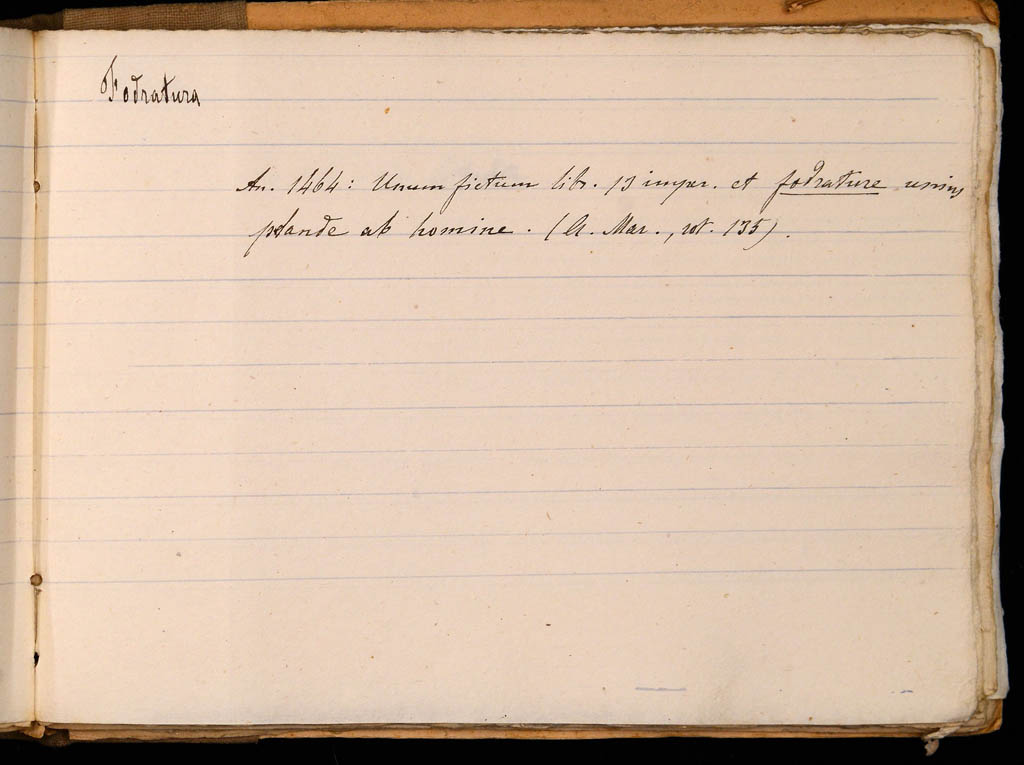 Fodratura
An. 1464: Unum fictum libr. 13 imper. et fodrature unius
plande ab homine. (A. Mar., rot. 135).